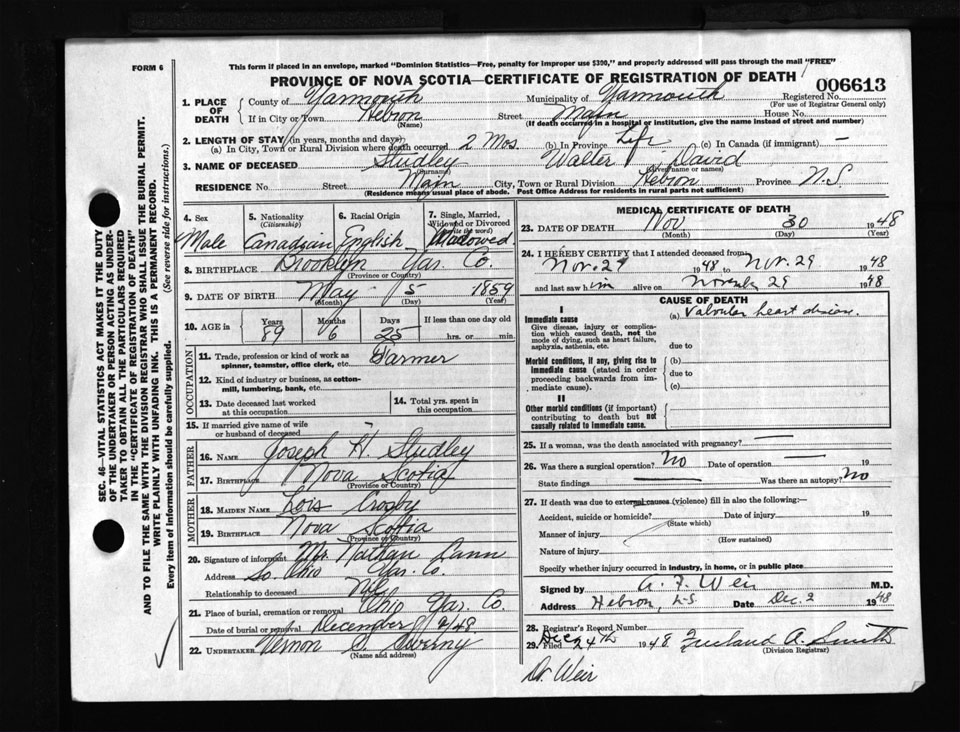 This form if placed in an envelope, marked "Dominion Statistics—Free, penalty for improper use $300," and properly addressed will pass through the mail "FREE"
FORM 6
PROVINCE OF NOVA SCOTIA—CERTIFICATE OF REGISTRATION OF DEATH
006613
1. PLACE OF DEATH
County of Yarmouth Municipality of Yarmouth Registered No.
(For use of Registrar General only)
If in City or Town Hebron Street Main House No.
(Name) (If death occurred in a hospital or institution, give the name instead of street and number)
2. LENGTH OF STAY (in years, months and days)
(a) In City, Town or Rural Division where death occurred 2 Mos. (b) In Province Life (c) In Canada (if immigrant) —
3. NAME OF DECEASED Studley Walter David
(Surname) (Given name or names)
RESIDENCE No. Street Main City, Town or Rural Division Hebron Province N.S.
(Residence means usual place of abode. Post Office Address for residents in rural parts not sufficient)
4. Sex 5. Nationality 6. Racial Origin 7. Single, Married, Widowed or Divorced
(Citizenship) (write the word)
Male Canadian English Widowed.
8. BIRTHPLACE Brooklyn Yar. Co.
(Province or Country)
9. DATE OF BIRTH May 5 1859
(Month) (Day) (Year)
10. AGE in Years Months Days If less than one day old
89 6 25 hrs. or min.
OCCUPATION
11. Trade, profession or kind of work as spinner, teamster, office clerk, etc. Farmer
12. Kind of industry or business, as cotton-mill, lumbering, bank, etc.
13. Date deceased last worked at this occupation
14. Total yrs. spent in this occupation
15. If married give name of wife or husband of deceased —
FATHER
16. NAME Joseph H. Studley
17. BIRTHPLACE Nova Scotia
(Province or Country)
MOTHER
18. MAIDEN NAME Lois Crosby
19. BIRTHPLACE Nova Scotia
(Province or Country)
20. Signature of informant Mr. Nathan Cann
Address So. Ohio Yar. Co.
Relationship to deceased Nil
21. Place of burial, cremation or removal Ohio Yar. Co.
Date of burial or removal December 2/48
22. UNDERTAKER Vernon Sweeny
(Name and address)
MEDICAL CERTIFICATE OF DEATH
23. DATE OF DEATH Nov. 30 1948
(Month) (Day) (Year)
24. I HEREBY CERTIFY that I attended deceased from
Nov. 29 1948 to Nov. 29 1948
and last saw him alive on November 29 1948
CAUSE OF DEATH
I
Immediate cause (a) Valvular heart disease.
Give disease, injury or complication which caused death, not the mode of dying, such as heart failure, asphyxia, asthenia, etc.
due to
Morbid conditions, if any, giving rise to immediate cause (stated in order proceeding backwards from immediate cause).
(b)
due to
(c)
II
Other morbid conditions (if important) contributing to death but not causally related to immediate cause.
25. If a woman, was the death associated with pregnancy? —
26. Was there a surgical operation? No Date of operation — 19
State findings — Was there an autopsy? No
27. If death was due to external causes (violence) fill in also the following:—
Accident, suicide or homicide? Date of injury 19
(State which)
Manner of injury
(How sustained)
Nature of injury
Specify whether injury occurred in industry, in home, or in public place
Signed by A. F. Weir M.D.
Address Hebron, N.S. Date Dec. 2 1948
28. Registrar's Record Number
29. Filed Dec. 24th 1948. A. Smith
(Division Registrar)
Dr. Weir
SEC. 46—VITAL STATISTICS ACT MAKES IT THE DUTY
OF THE UNDERTAKER OR PERSON ACTING AS UNDERTAKER TO OBTAIN ALL THE PARTICULARS REQUIRED
IN THE "CERTIFICATE OF REGISTRATION OF DEATH"
AND TO FILE THE SAME WITH THE DIVISION REGISTRAR WHO SHALL ISSUE THE BURIAL PERMIT.
WRITE PLAINLY WITH UNFADING INK. THIS IS A PERMANENT RECORD.
Every item of information should be carefully supplied. (See reverse side for instructions.)